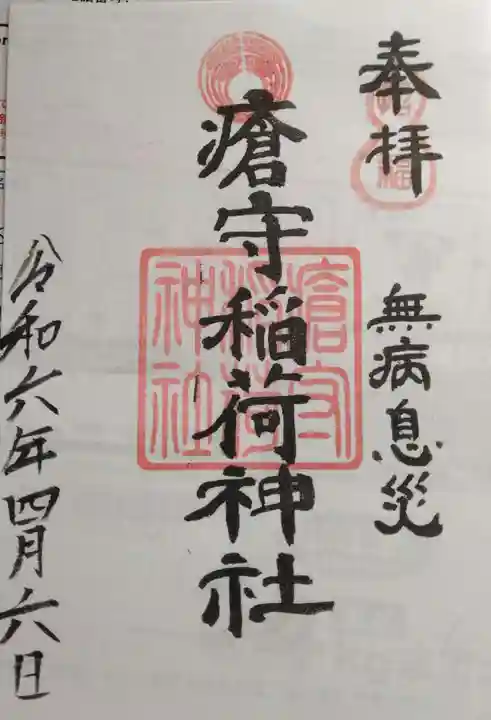 奉拝
無病息災
瘡守稲荷神社
瘡守稲荷神社
令和六年四月六日